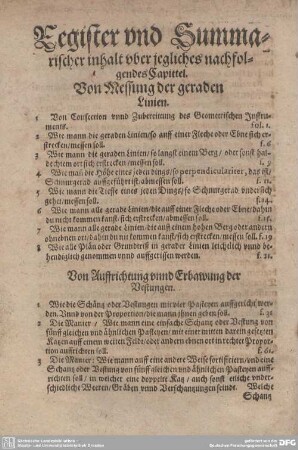 Register vnd Summa-
rischer inhalt vber jegliches nachfol-
gendes Capittel.
Von Messung der geraden
Linien.
1 Von Consection vnnd Zubereitung des Geometrischen Instru-
ments. fol. 1.
2 Wie mann die geraden Linien/so auff einer Fleche oder Ebne sich er-
strecken/messen soll.
3 Wie mann die geraden Linien/so langst einem Berg/ oder sonst hal-
dechtig sich erstrecken/messen soll. f. 9.
4 Wie man die Höhe eines jeden dings/so perpendiculariter, das ist/
Schnurgerad auffgeführt ist abmessen soll. f. 11.
5 Wie mann die Tieffe eines jeden Dings/so Schnurgerad vndersich
gehet/messen soll. f. 14.
6 Wie mann alle gerade Linien/die auff einer Fleche oder Ebne/dahin
du nicht kommen kanst/sich erstrecken/abmessen soll. f. 16.
7 Wie mann alle gerade Linien/die auff einem hohen Berg oder andern
ohnebnen ort/dahin du nie kommen kanst/sich erstrecken/messen soll. f. 19.
8 Wie alle Plän oder Grundriß in gerader Linien leichtlich vnnd be-
hendiglich genommen vnnd auffgerissen werden. f. 21.
Von Auffrichtung vnnd Erbawung der
Vestungen.
1 Wie die Schantz oder Vestungen mit vier Pasteyen auffgericht wer-
den. Vnnd von der Proportion/die mann ihnen geben soll. f. 35.
2 Die Manier/ Wie mann eine einfache Schantz oder Vestung von
fünff gleichen vnd ähnlichen Pasteyen/mit einer mitten darein gelegten
Katzen auff einem weiten Feld/oder andern ebnen ort in rechter Propor-
tion auffrichten soll. f. 61.
3 Die Manier/ Wie mann auff eine andere Weise fortificieren/vnd eine
Schantz oder Vestung von fünff gleichen vnd ähnlichen Pasteyen auff-
richten soll/ in welcher eine doppelte Katz/ auch sonst etliche vnder-
schiedliche Wercken/Gräben vnnd Verschantzungen seindt. Welche
Schantz